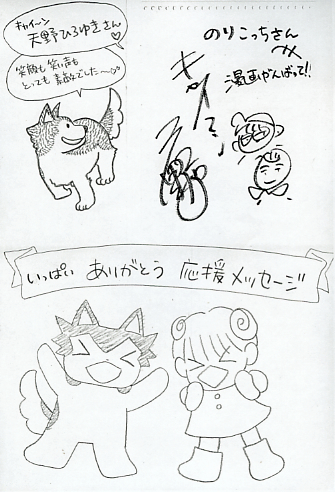 キャイ〜ン
天野ひろゆきさん
笑顔も笑い声も
とっても素敵でした〜
のりこっちさん
漫画がんばって!!
いっぱい ありがとう 応援メッセージ